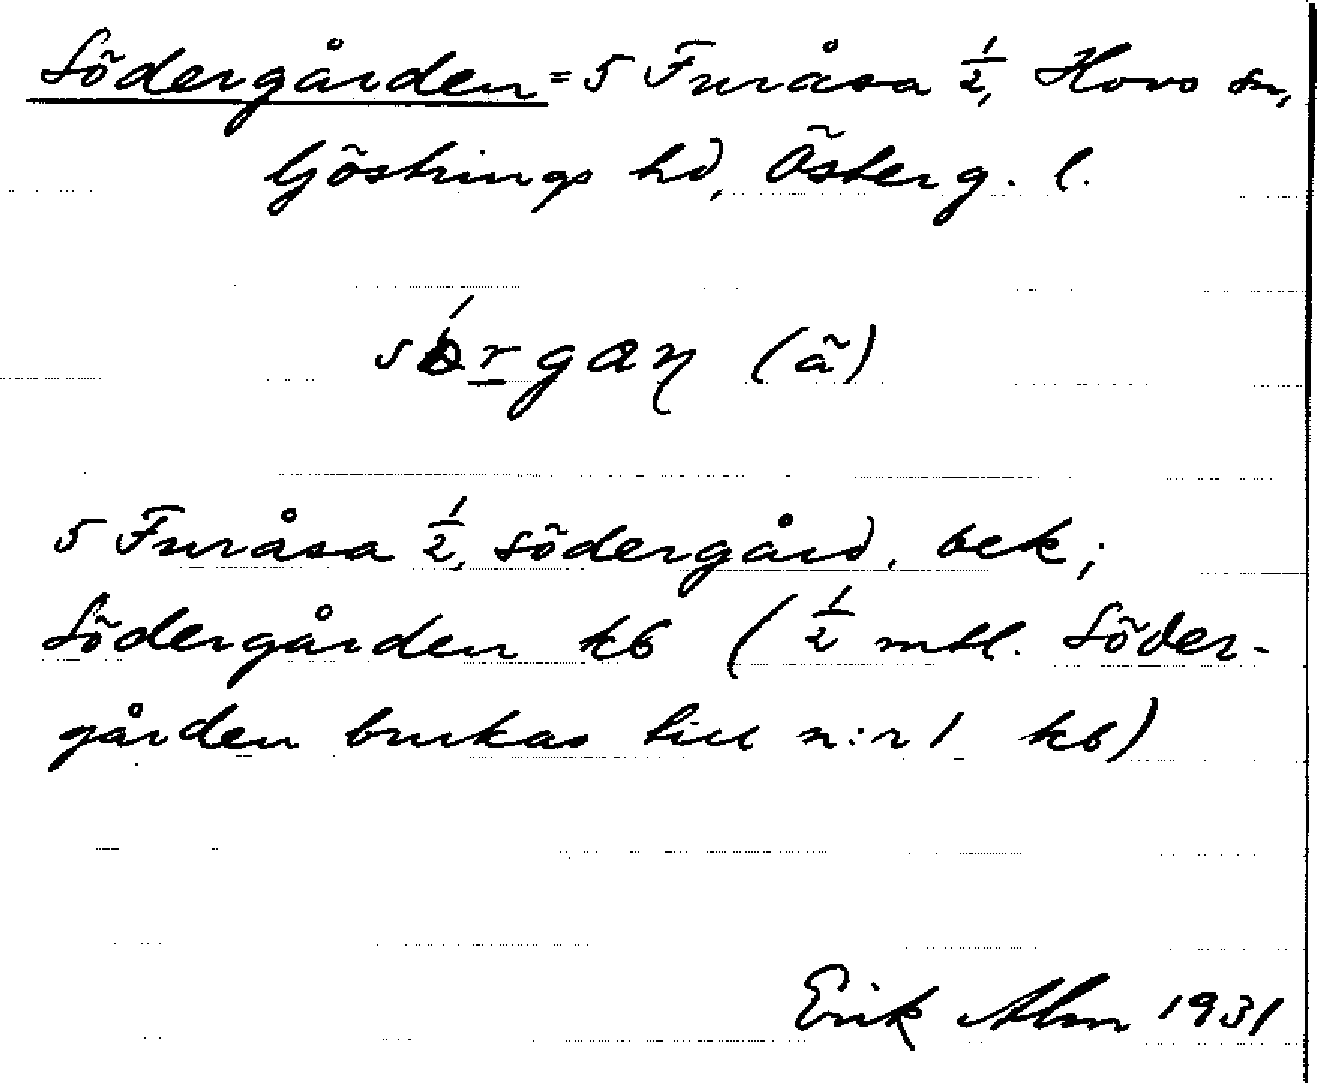 Södergården = 5 Furåsa 1/2, Hovs sn,
Göstrings hd, Österg. l.
(ã)
5 Furåsa 1/2, Södergård. bek;
Södergården kb (1/2 mtl. Söder-
gården brukas till n:r 1 kb)
Erik Alm 1931